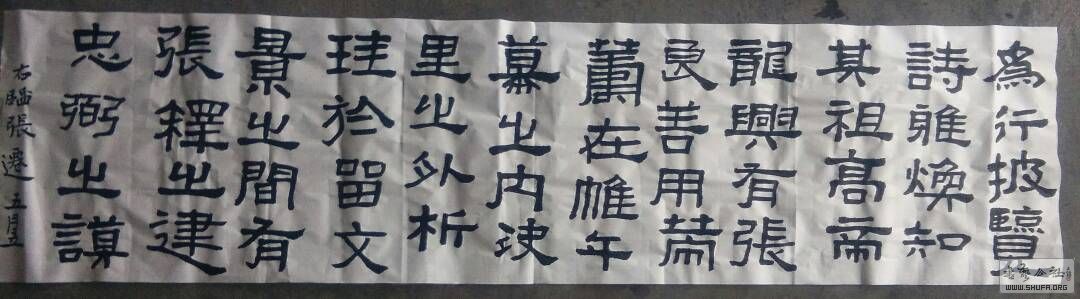 為行披覽
詩雅煥知
其祖高帝
龍興有張
良善用
在帷午
幕之内決
里之外析
珪於留文
景之間有
張釋之建
忠弼之謨
右臨張遷 五月五
WWW.SHUFA.ORG